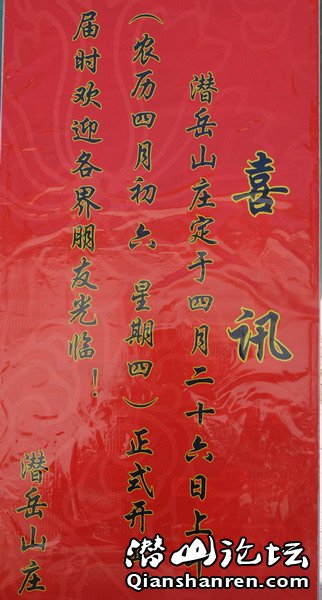 喜讯
潜岳山庄定于四月二十六日上午
(农历四月初六 星期四)正式开
届时欢迎各界朋友光临!
潜岳山庄
潜山论坛
Qianshanren.com